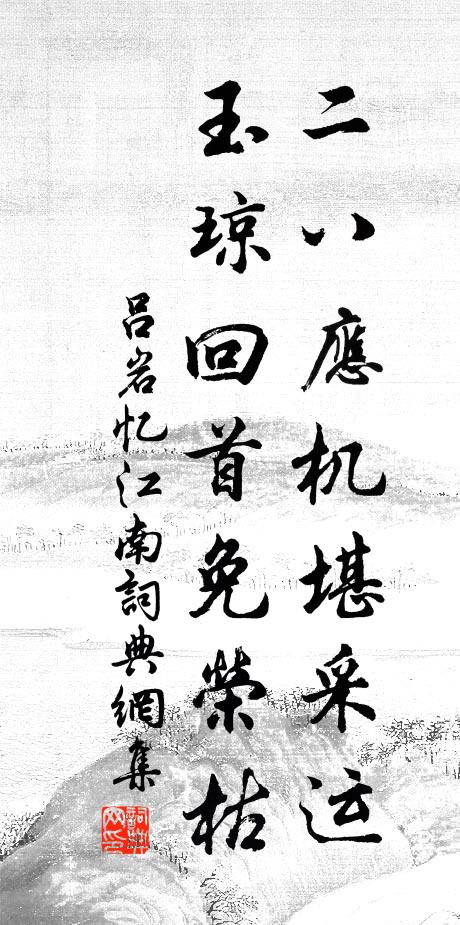 二八應机堪采运
玉琼回首免榮枯
吕岩忆江南詞典網集